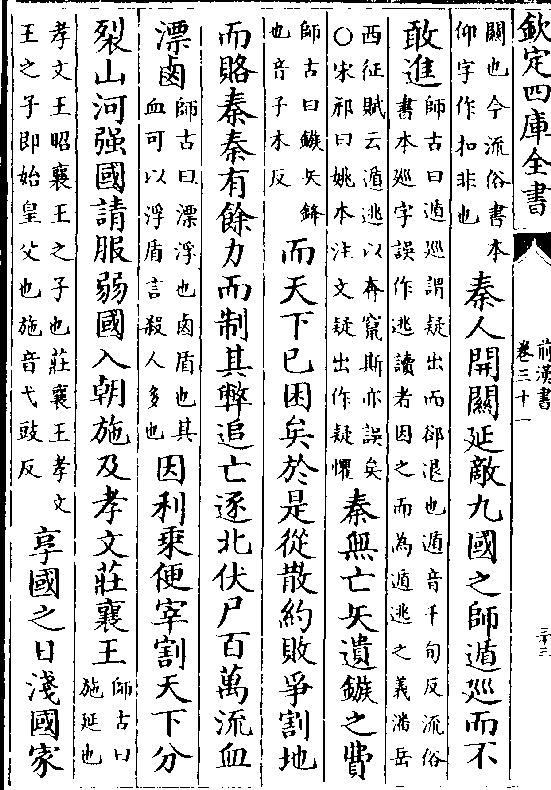 欽定四庫全書
前漢書
卷三十一
三十三
關也今流俗書本
仰字作扣非也
秦人開關延敵九國之師遁巡而不
敢進
師古曰遁巡謂疑出而卻退也遁音千旬反流俗
書本巡字誤作逃讀者因之而為遁逃之義潘岳
西征賦云遁逃以奔竄斯亦誤矣
○宋祁曰姚本注文疑出作疑懼
秦無亡矢遺鏃之費
師古曰鏃矢鋒
也音子木反
而天下已困矣於是從散約敗爭割地
而賂秦秦有餘力而制其弊追亡逐北伏尸百萬流血
漂鹵
師古曰漂浮也鹵盾也其
血可以浮盾言殺人多也
因利乗便宰割天下分
裂山河强國請服弱國入朝施及孝文莊襄王
師古曰
施延也
孝文王昭襄王之子也莊襄王孝文
王之子即始皇父也施音弋豉反
享國之日淺國家